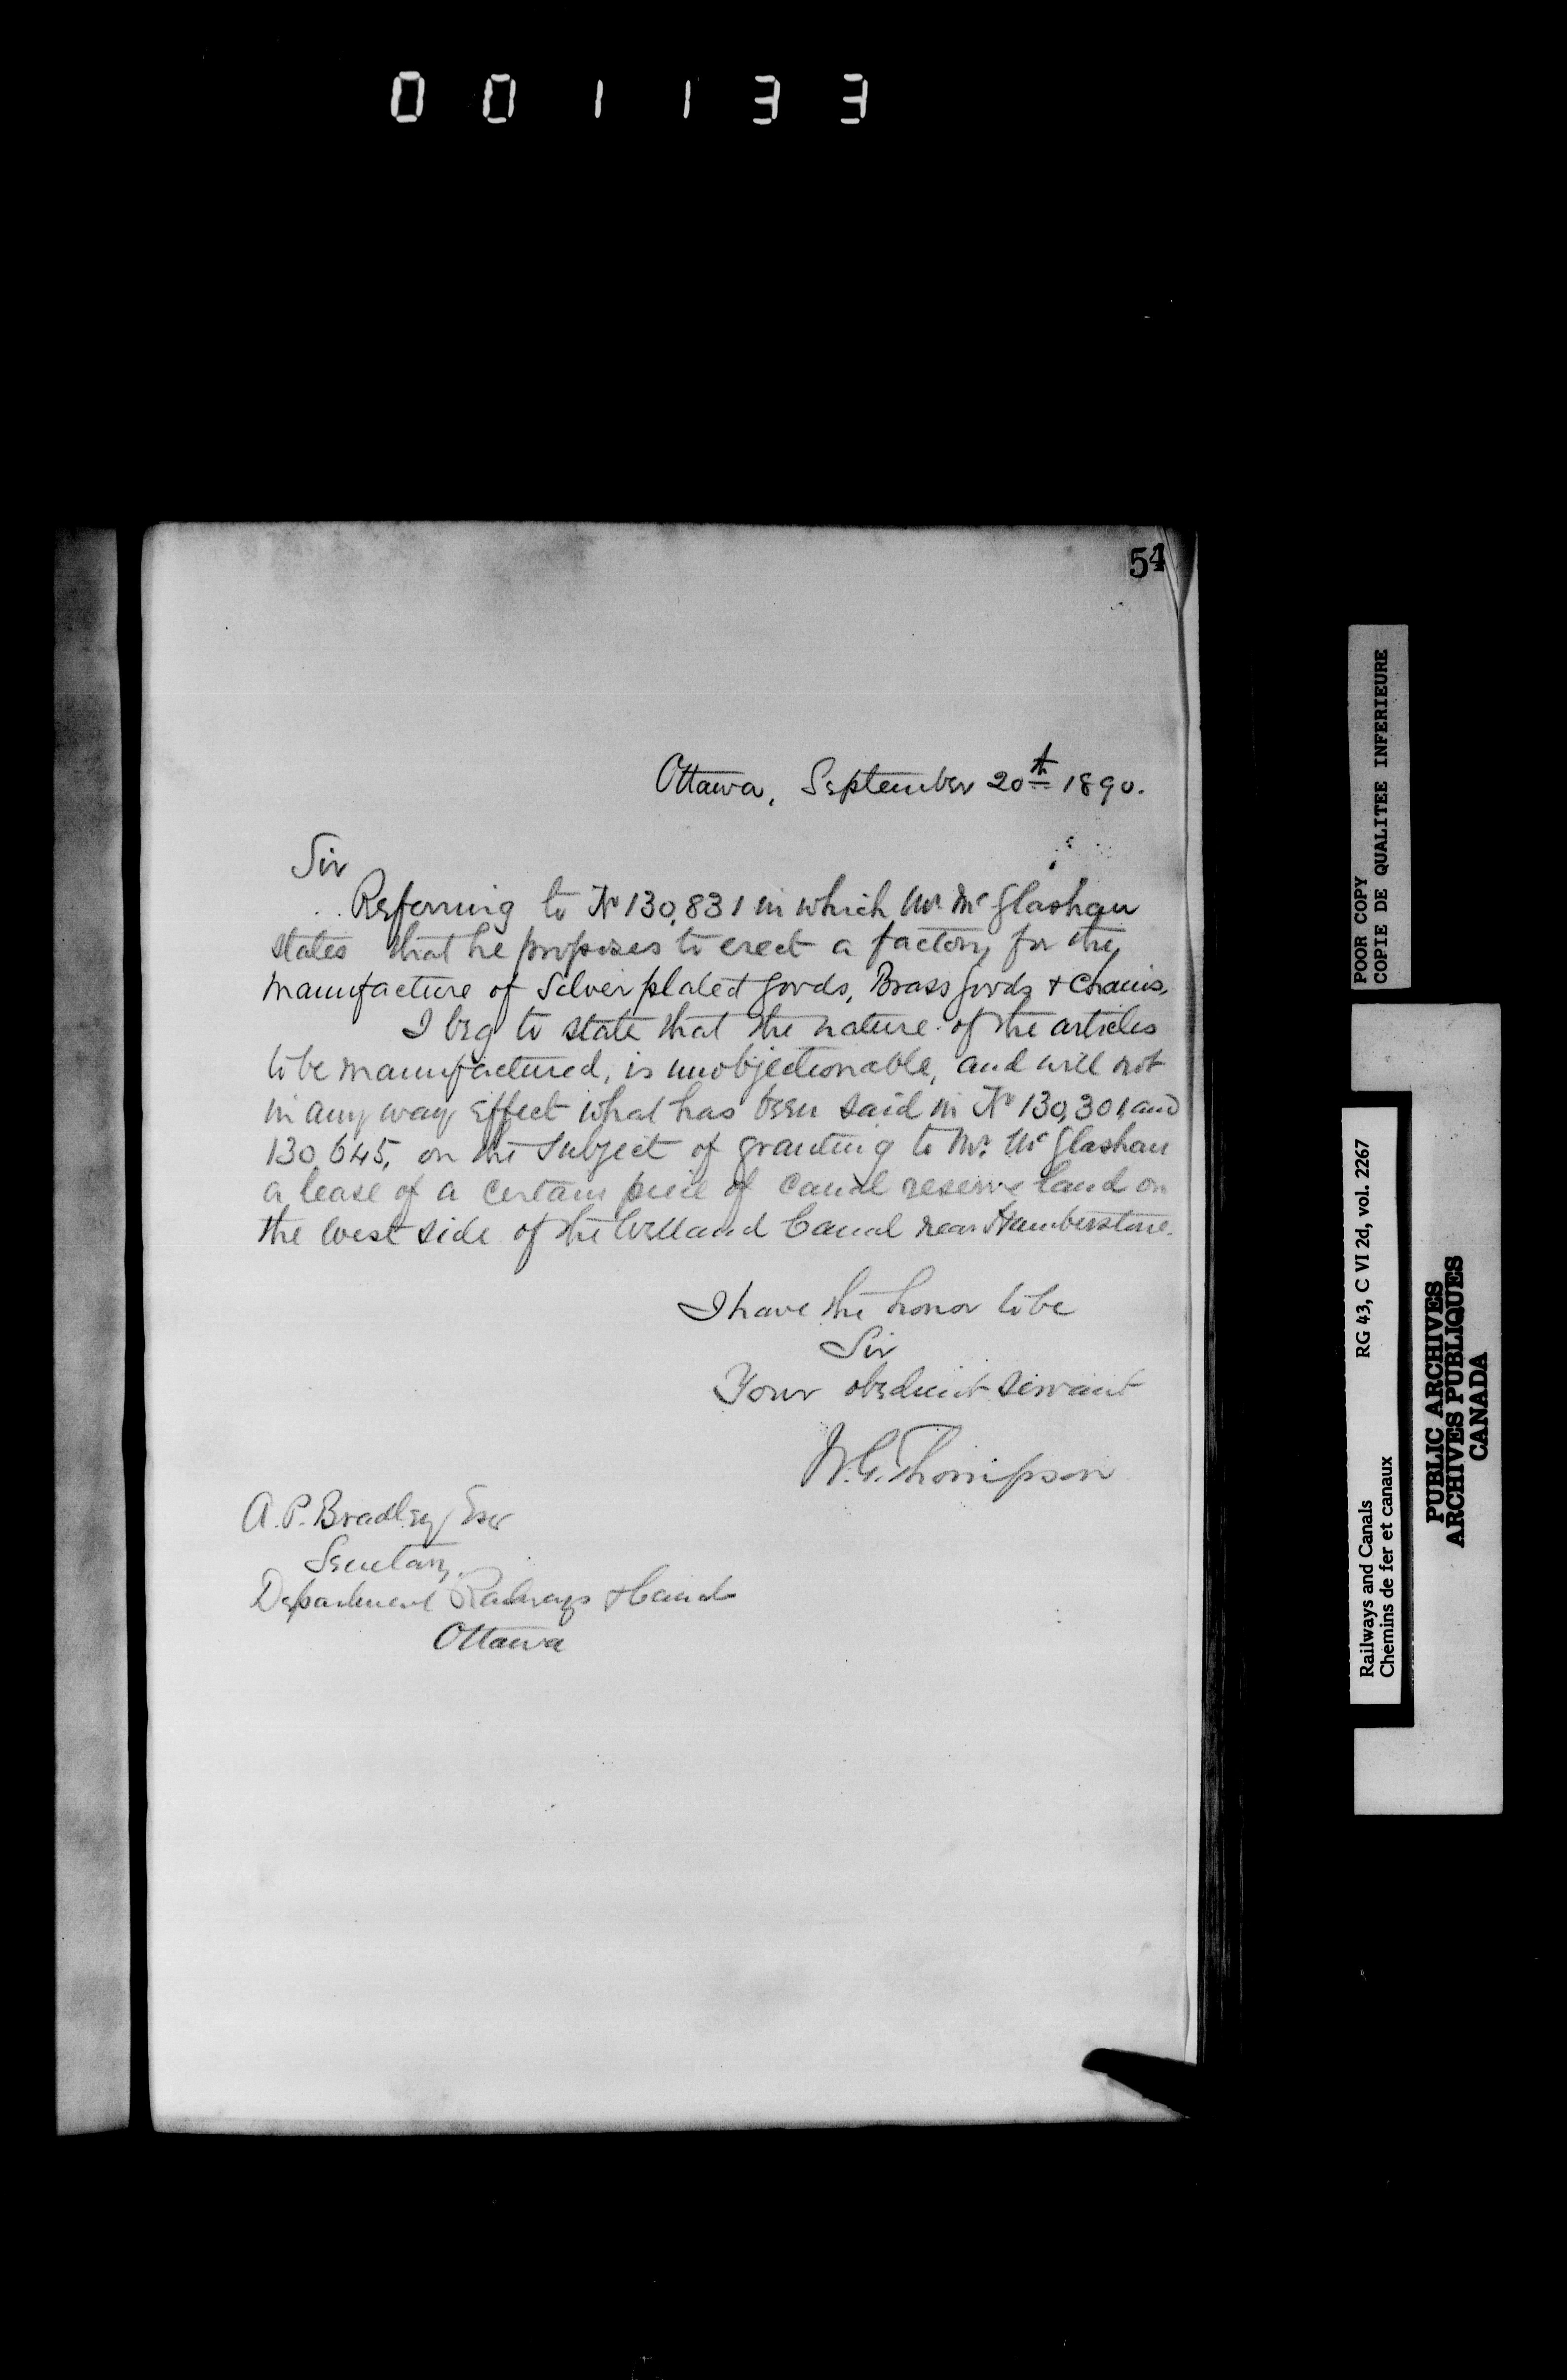 001133
54
Ottawa, September 20th 1890.
Sir
Referring to No 130,831 in which Mr. McGlashan
states that he proposes to erect a factory for the
manufacture of Silver plated goods, Brass goods & chains,
I beg to state that the nature of the articles
to be manufactured, is unobjectionable, and will not
in any way effect what has been said in No 130,301, and
130645, on the subject of granting to Mr. McGlashan
a lease of a certain piece of canal reserve land on
the west side of the Welland Canal near Humberstone.
I have the honor to be
Sir
Your obedient servant
W.G. Thompson
A.P. Bradley Esqr
Secretary
Department Railways & Canals
Ottawa
POOR COPY
COPIE DE QUALITEE INFERIEURE
Railways and Canals RG 43, C VI 2d, vol. 2267
Chemins de fer et canaux
PUBLIC ARCHIVES
ARCHIVES PUBLIQUES
CANADA